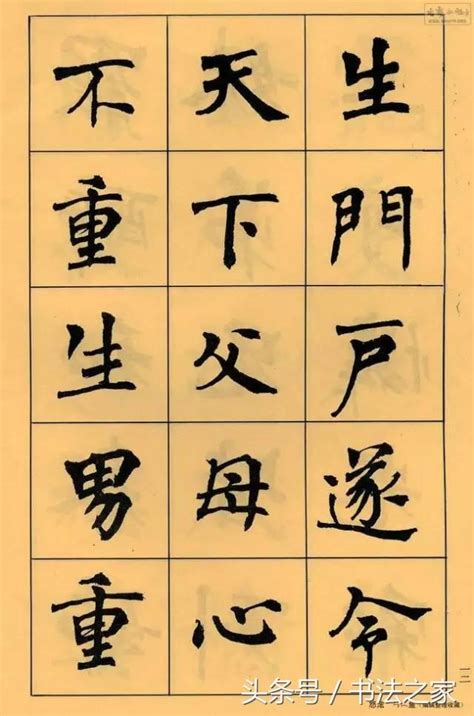 生門戶遂令
天下父母心
不重生男重
头条号 / 书法之家